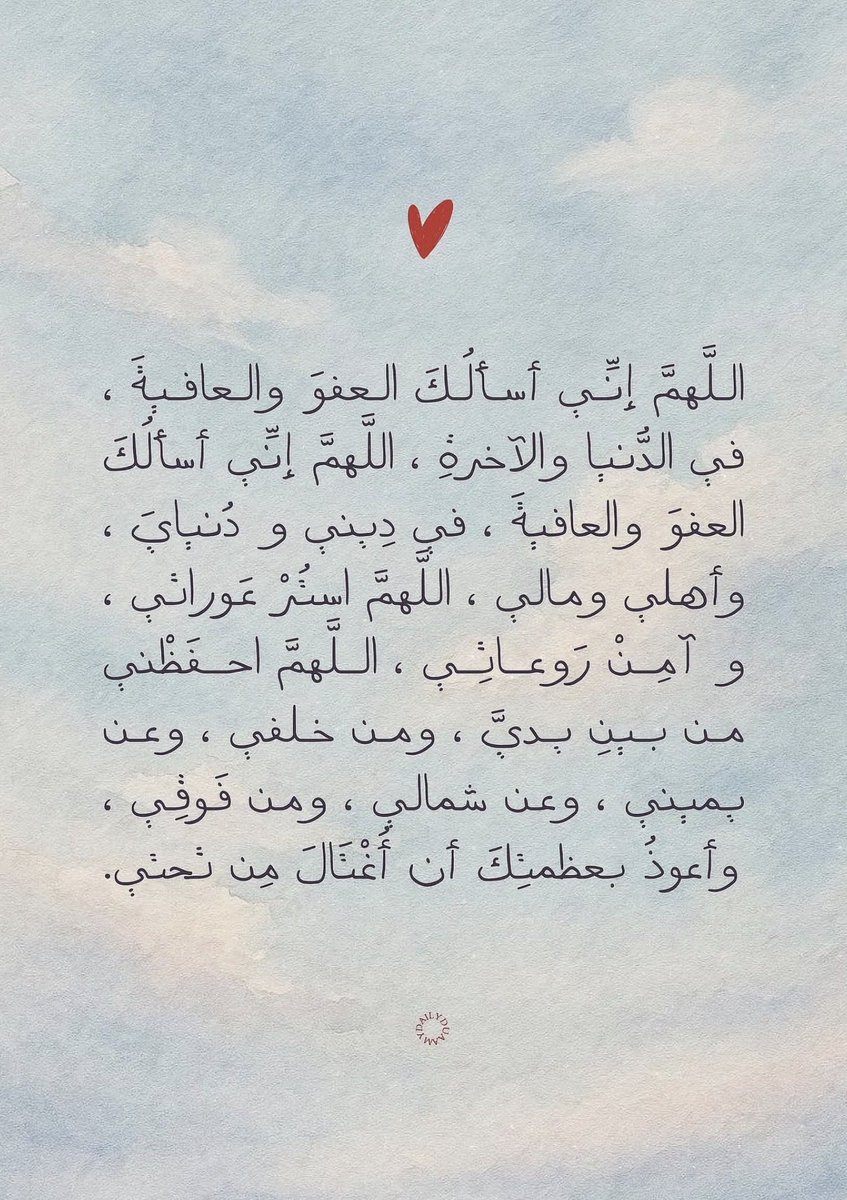 اللَّهمَّ إنِّي أسألُكَ العفوَ والعافيةَ ،
في الدُّنيا والآخرةِ ، اللَّهمَّ إنِّي أسألُكَ
العفوَ والعافيةَ ، في دِيني و دُنيايَ ،
وأهلي ومالي ، اللَّهمَّ استُرْ عَوراتي ،
و آمِنْ رَوعاتِي ، اللَّهمَّ احفَظْني
من بينِ يديَّ ، ومن خلفي ، وعن
يميني ، وعن شمالي ، ومن فَوقِي ،
وأعوذُ بعظمتِكَ أن أُغْتَالَ مِن تحتي.
MYDAILYDUAA